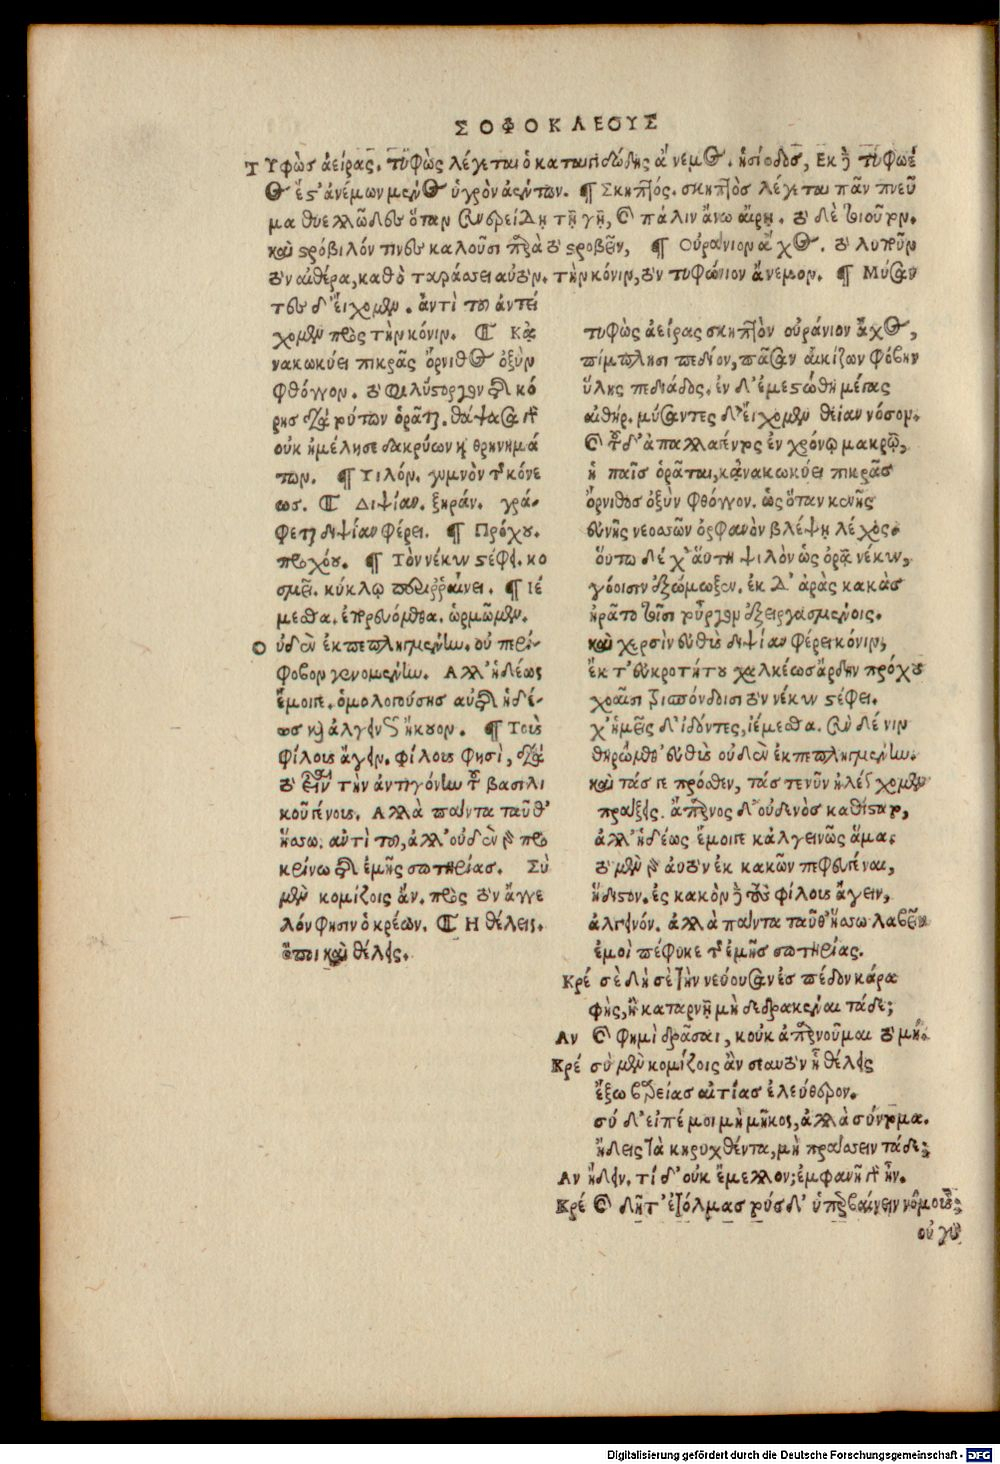 ΣΟΦΟΚΛΕΟΥΣ
Τυφὼς ἀείρας. τυφὼς λέγεται ὁ καταιγιδώδης ἄνεμος. ἡσίοδος, Ἐκ δὲ τυφωέ
ος ἔστ' ἀνέμων μένος ὑγρὸν ἀέντων. ¶ Σκηπτός. σκηπτὸς λέγεται πᾶν πνεῦ
μα θυελλῶδες ὅταν συνερείδῃ τῇ γῇ, καὶ πάλιν ἄνω αἴρῃ. τὸ δὲ τοιοῦτον.
καὶ στρόβιλόν τινες καλοῦσι παρὰ τὸ στροβεῖν, ¶ Οὐράνιον ἄχος. τὸ λυποῦν
τὸν αἰθέρα, καθὸ ταράσσει αὐτὸν. τὴν κόνιν, τὸν τυφώνιον ἄνεμον. ¶ Μύσαν
τες δ' εἴχομεν. ἀντὶ τοῦ ἀντεί
χομεν πρὸς τὴν κόνιν. ¶ Κἀ
νακωκύει πικρᾶς ὄρνιθος ὀξὺν
φθόγγον. τὸ φιλόστοργον τῆς κό
ρης διὰ τούτων ὁρᾶται. θάψασα γὰρ
οὐκ ἠμέλησε δακρύων καὶ θρηνημά
των. ¶ Ψιλόν. γυμνὸν τῆς κόνε
ως. ¶ Διψίαν. ξηράν. γρά-
φεται διψίαν φέρει. ¶ Πρόχου.
προχόου. ¶ Τὸν νέκυν στέφει. κο
σμεῖ. κύκλῳ περιρραίνει. ¶ Ἱέ
μεσθα. ἐπορευόμεθα. ὡρμῶμεν.
Οὐδὲν ἐκπεπληγμένην. οὐ περί-
φοβον γενομένην. Ἀλλ' ἡδέως
ἔμοιγε. ὁμολογούσης αὐτῆς ἡδέ-
ως καὶ ἀλγεινῶς ἤκουον. ¶ Τοὺς
φίλους ἄγειν. φίλους φησὶ, διὰ
τὸ εἶναι τὴν ἀντιγόνην τοῦ βασιλι
κοῦ γένους. Ἀλλὰ πάντα ταῦθ'
ἥσσω. ἀντὶ τοῦ, ἀλλ' οὐδὲν γὰρ προ
κρίνω τῆς ἐμῆς σωτηρίας. Σὺ
μὲν κομίζοις ἄν. πρὸς τὸν ἄγγε
λόν φησιν ὁ κρέων. ¶ Ἡ θέλεις.
ὅποι καὶ θέλεις.
τυφὼς ἀείρας σκηπτὸν οὐράνιον ἄχος,
πίμπλησι πεδίον, πᾶσαν αἰκίζων φόβην
ὕλης πεδιάδος. ἐν δ' ἐμεστώθη μέγας
αἰθήρ. μύσαντες δ' εἴχομεν θείαν νόσον.
καὶ τοῦδ' ἀπαλλαγέντος ἐν χρόνῳ μακρῷ,
ἡ παῖς ὁρᾶται, κἀνακωκύει πικρᾶς
ὄρνιθος ὀξὺν φθόγγον. ὡς ὅταν κενῆς
εὐνῆς νεοσσῶν ὀρφανὸν βλέψῃ λέχος.
οὕτω δὲ χ' αὕτη ψιλὸν ὡς ὁρᾷ νέκυν,
γόοισιν ἐξώμωξεν. ἐκ δ' ἀρὰς κακὰς
ἠρᾶτο τοῖσι τοὔργον ἐξειργασμένοις.
καὶ χερσὶν εὐθὺς διψίαν φέρει κόνιν,
ἔκ τ' εὐκροτήτου χαλκέως ἄρδην πρόχου
χοαῖσι τρισπόνδοισι τὸν νέκυν στέφει.
χ' ἡμεῖς δ' ἰδόντες, ἱέμεσθα. σὺν δέ νιν
θηρώμεθ' εὐθὺς οὐδὲν ἐκπεπληγμένην.
καὶ τάς τε πρόσθεν, τάς τε νῦν ἠλέγχομεν
πράξεις. ἄπαρνος δ' οὐδενὸς καθίστατο,
ἀλλ' ἡδέως ἔμοιγε κἀλγεινῶς ἅμα.
τὸ μὲν γὰρ αὐτὸν ἐκ κακῶν πεφευγέναι,
ἥδιστον. ἐς κακὸν δὲ τοὺς φίλους ἄγειν,
ἀλγεινόν. ἀλλὰ πάντα ταῦθ' ἥσσω λαβεῖν
ἐμοὶ πέφυκε τῆς ἐμῆς σωτηρίας.
Κρέ σὲ δὴ σὲ τὴν νεύουσαν ἐς πέδον κάρα
φῂς, ἢ καταρνῇ μὴ δεδρακέναι τάδε;
Αν καὶ φημὶ δρᾶσαι, κοὐκ ἀπαρνοῦμαι τὸ μή.
Κρέ σὺ μὲν κομίζοις ἂν σεαυτὸν ᾗ θέλεις
ἔξω βαρείας αἰτίας ἐλεύθερον.
σύ δ' εἰπέ μοι μὴ μῆκος, ἀλλὰ σύντομα.
ᾔδεις τὰ κηρυχθέντα, μὴ πράσσειν τάδε;
Αν ᾔδειν. τί δ' οὐκ ἔμελλον; ἐμφανῆ γὰρ ἦν.
Κρέ καὶ δῆτ' ἐτόλμας τούσδ' ὑπερβαίνειν νόμους;
οὐ γάρ
Digitalisierung gefördert durch die Deutsche Forschungsgemeinschaft - DFG